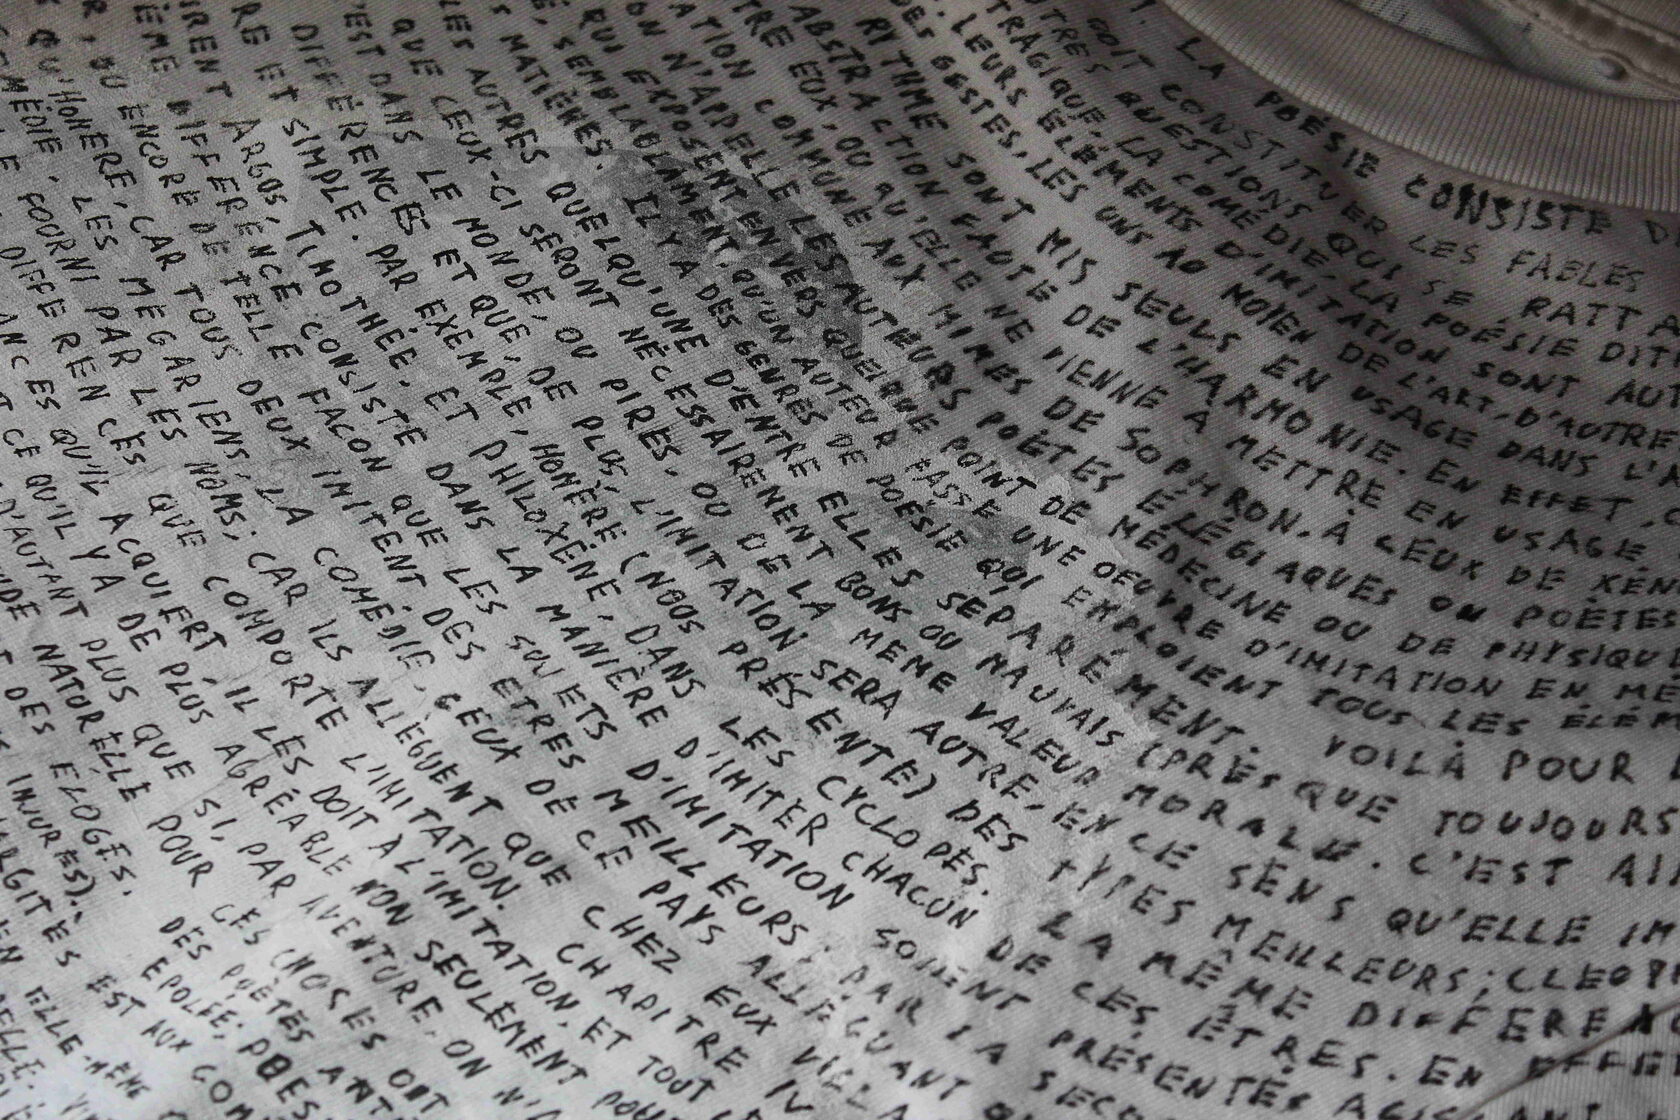 LA POÉSIE CONSISTE D
GOIT CONSTITUER LES FABLES
UTRES QUESTIONS QUI SE RATTA
TRAGIQUE, LA COMÉDIE, LA POÉSIE DIT
LEURS ELÉMENTS D'IMITATION SONT AUT
DES GESTES, LES UNS AU MOYEN DE L'ART, D'AUTRE
RYTHME SONT MIS SEULS EN USAGE DANS L'A
ABSTRACTION FAITE DE L'HARMONIE. EN EFFET,
TRE EUX, OU QU'ELLE NE VIENNE À METTRE EN USAGE,
ATION COMMUNE AUX MIMES DE SOPHRON. À CEUX DE XÉN
ON N'APPELLE LES AUTEURS POÈTES ÉLÉGIAQUES OU POÈTES
QUI EXPOSENT EN VERS QUELQUE POINT DE MÉDECINE OU DE PHYSIQUE
É, SEMBLABLEMENT, QU'UN AUTEUR FASSE UNE OEUVRE D'IMITATION EN MÉ
S MATIÈRES. IL Y A DES GENRES DE POÉSIE QUI EMPLOIENT TOUS LES ÉLÉM
LES AUTRES QUELQU'UNE D'ENTRE ELLES SEPARÉMENT. VOILÀ POUR
QUE CEUX-CI SERONT NÉCESSAIREMENT BONS OU MAUVAIS (PRESQUE TOUJOURS
'EST DANS LE MONDE, OU PIRES, OU DE LA MEME VALEUR MORALE. C'EST AIN
DIFFÉRENCES ET QUE, DE PLUS, L'IMITATION SERA AUTRE, EN CE SENS QU'ELLE IM
RE ET SIMPLE. PAR EXEMPLE, HOMÈRE (NOUS PRÉSENTE) DES TYPES MEILLEURS; CLEOP
IRENT ARGOS, TIMOTHÉE, ET PHILOXÈNE, DANS LES CYCLOPES. LA MÊME DIFFÉREN
ÈME DIFFÉRENCE CONSISTE DANS LA MANIÈRE D'IMITER CHACUN DE CES ÊTRES. EN EFFE
R, OU ENCORE DE TELLE FACON QUE LES SUJETS D'IMITATION SOIENT PRÉSENTÉS AGIS
QU'HOMÈRE, CAR TOUS DEUX IMITENT DES ETRES MEILLEURS. PAR LA SECO
MÉDIE. LES MÉGARIENS, LA COMÉDIE, CEUX DE CE PAYS ALLÉGUANT QU
E FOURNI PAR LES NOMS; CAR ILS ALLÈGUENT QUE CHEZ EUX
DIFFERENCES QUE COMPORTE L'IMITATION. CHAPITRE IV
ANCES QU'IL ACQUIERT, IL LES DOIT À L'IMITATION, ET TOUT
T CE QU'IL Y A DE PLUS AGRÉABLE NON SEULEMENT POU
D'AUTANT PLUS QUE SI, PAR AVENTURE, ON N'A
UDE NATURELLE POUR CES CHOSES ONT
T DES ÉLOGES. DES POÈTES ANT
INJURES). EPOPÉE; POÈS
ARGITÈS EST AUX COM
EN ELLE-MÊME